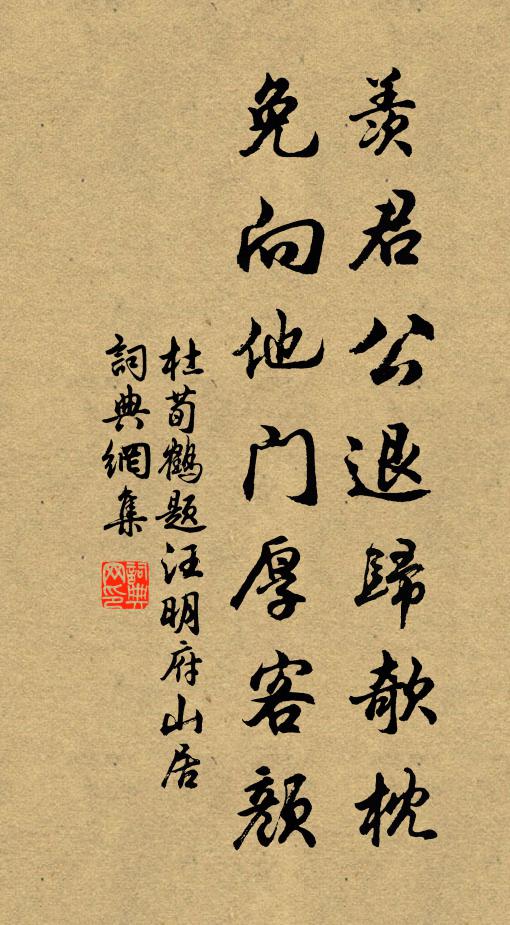 羨君公退歸欹枕
免向他门厚客顏
杜荀鶴题汪明府山居
詞典網集
詞典
网印